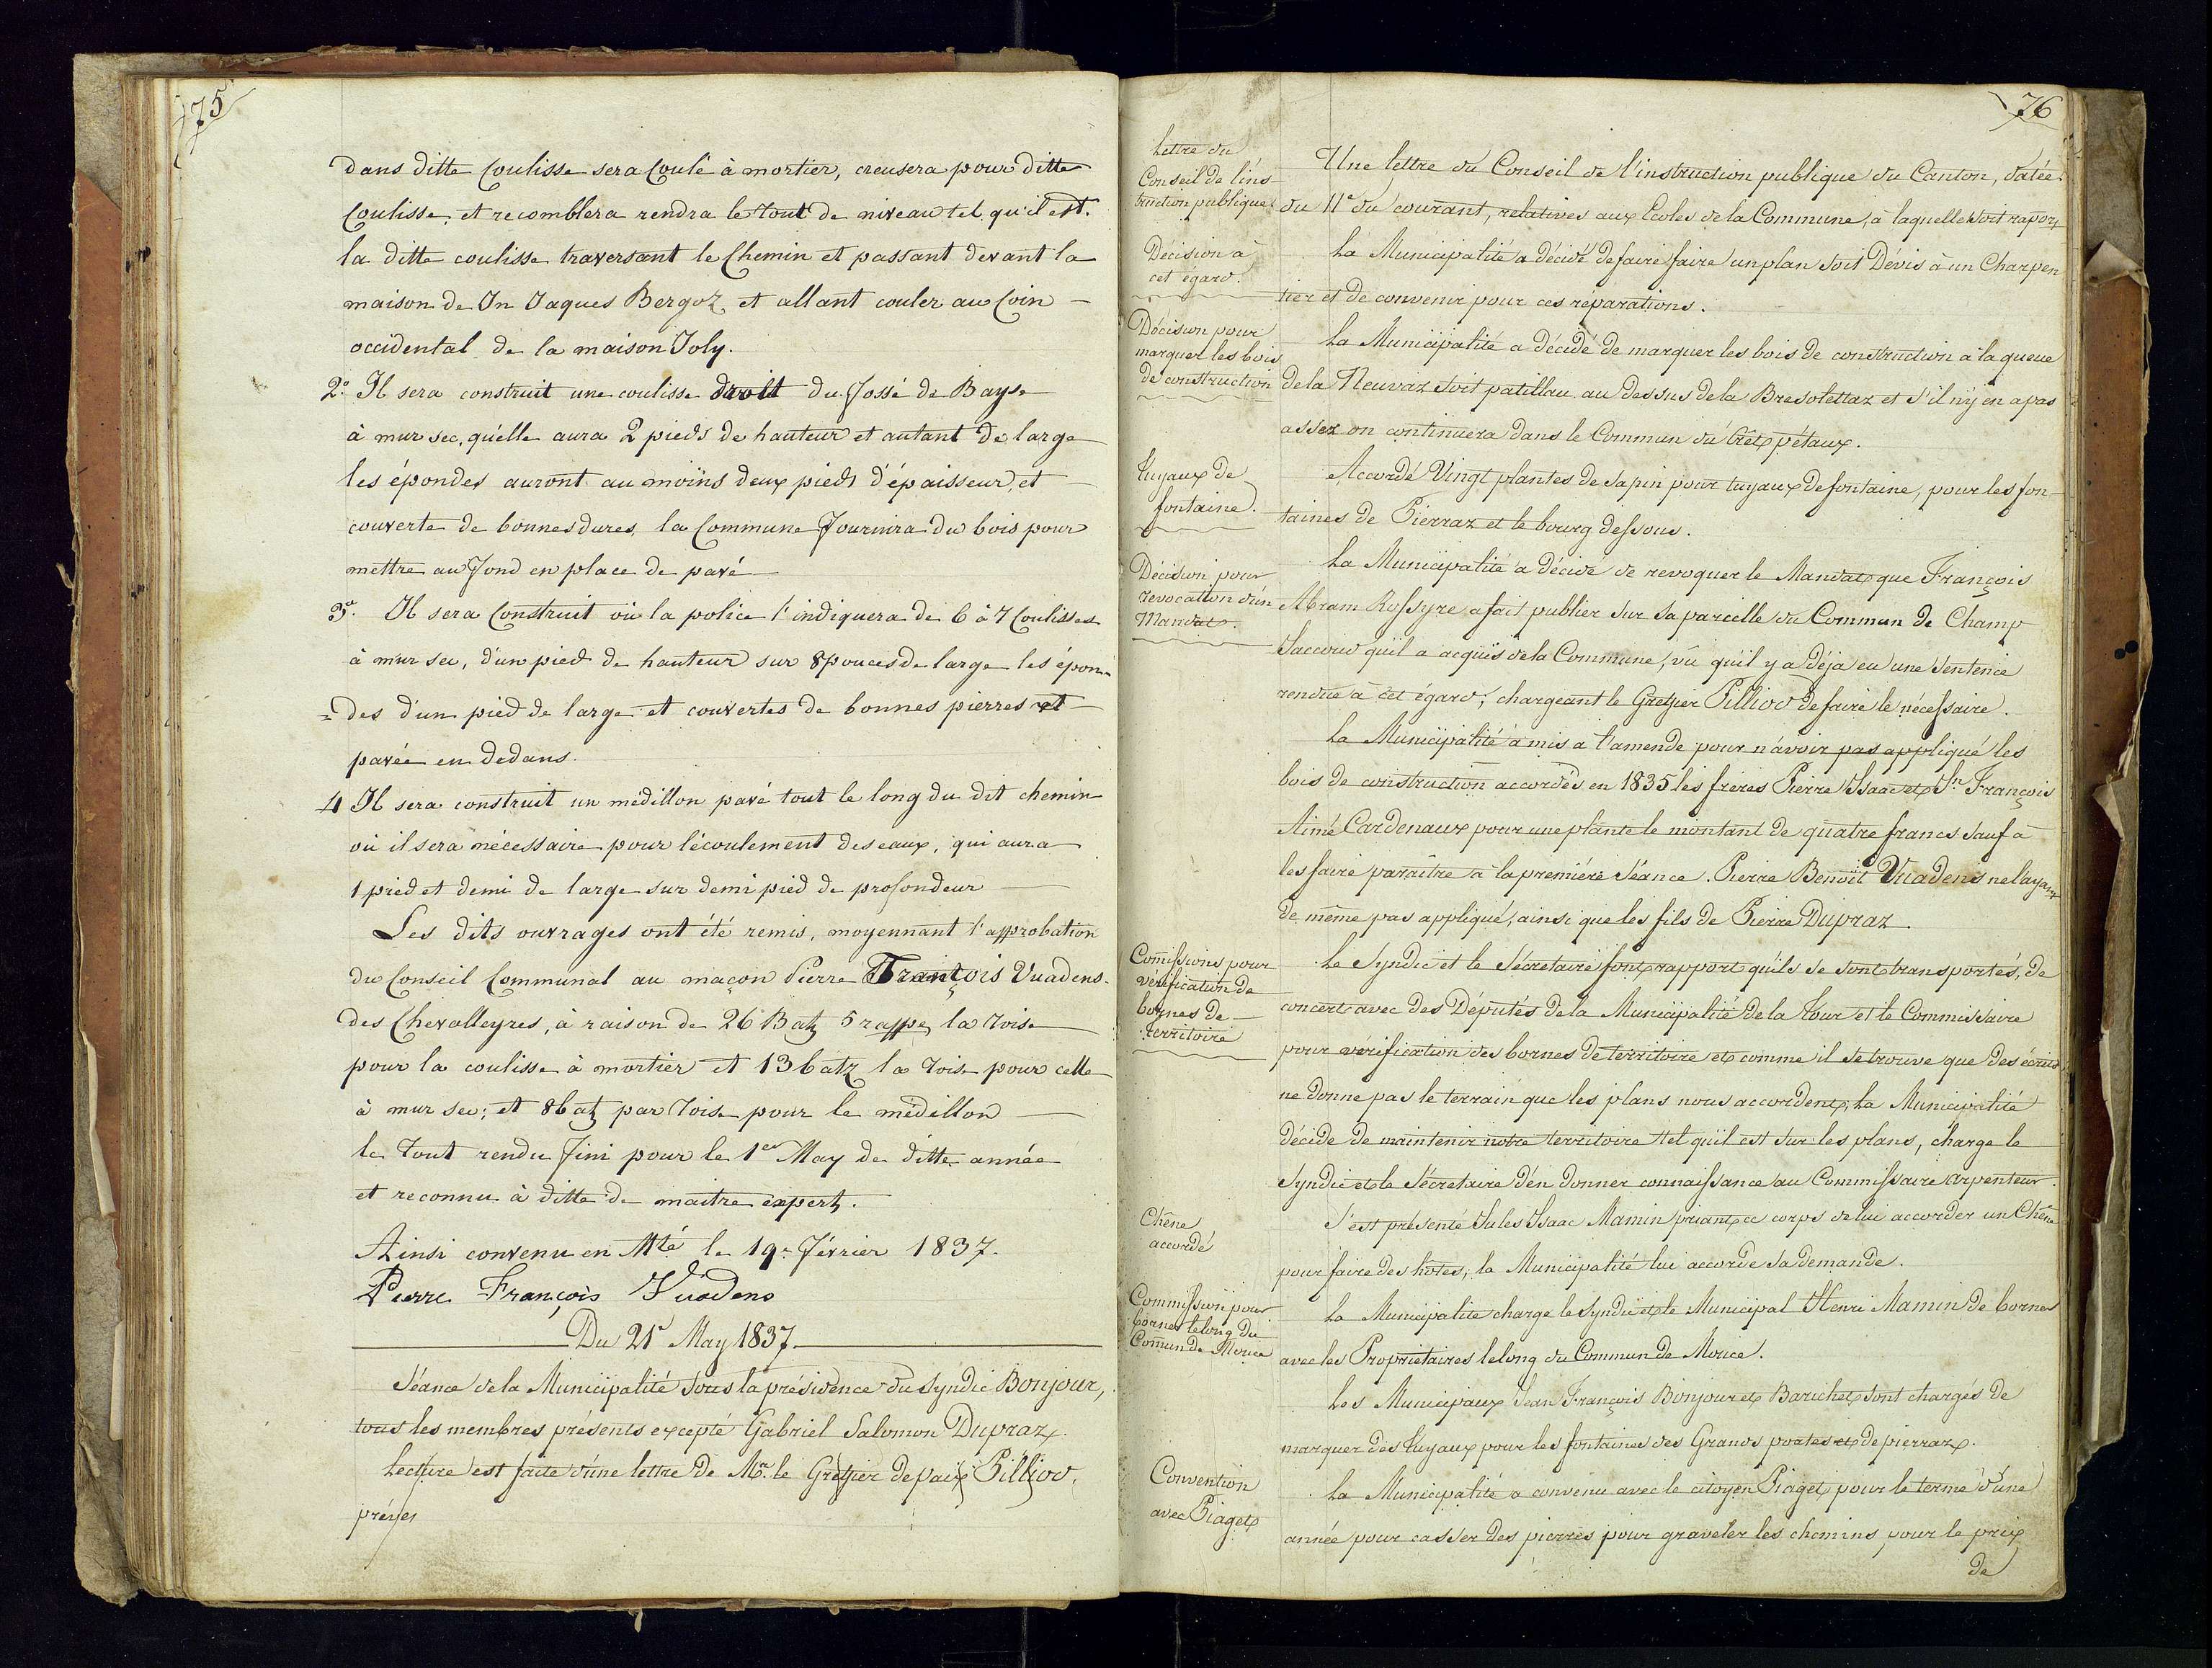 75
dans ditte Coulisse sera Coulé à mortier, creusera pour ditte
Coulisse, et recomblera rendra le tout de niveau tel qu'il est.
la ditte coulisse traversant le Chemin et passant devant la
maison de Jn Jaques Bergoz et allant couler au Coin
occidental de la maison Joly.
2º. Il sera construit une coulisse droit du fossé de Bayse
à mur sec, qu'elle aura 2 pieds de hauteur et autant de large
les épondes auront au moins deux pieds d'épaisseur, et
couverte de bonnes dures, la Commune fournira du bois pour
mettre au fond en place de pavé
3º. Il sera Construit où la police l'indiquera de 6 à 7 Coulisses
à mur sec, d'un pied de hauteur sur 8 pouces de large les épon=
=des d'un pied de large et couvertes de bonnes pierres et
pavée en dedans.
4 Il sera construit un médillon pavé tout le long du dit chemin
où il sera nécessaire pour lécoulement des eaux, qui aura
1 pied et demi de large sur demi pied de profondeur
Les dits ouvrages ont été remis, moyennant l'approbation
du Conseil Communal au maçon Pierre François Vuadens
des Chevalleyres, à raison de 26 Batz 5 rappes la toise
pour la coulisse à mortier et 13 batz la toise pour celle
à mur sec; et 8 batz par toise pour le médillon
le tout rendu fini pour le 1er May de ditte année
et reconnu à ditte de maitre expert.
Ainsi convenu en Mté le 19e février 1837.
Pierre François Vuadens
Du 21e May 1837.
Séance de la Municipalité sous la présidence du Syndic Bonjour,
tous les membres présents excepté Gabriel Salomon Dupraz.
Lecture est faite d'une lettre de Mr. le Greffier de paix Pilliod,
76
Lettre du
Conseil de l'ins-
truction publique
Une lettre du Conseil de l'instruction publique du Canton, datée
du 11e du courant, relatives aux Ecoles de la Commune, à laquelle soit raport
Décision à
cet égard.
La Municipalité a décidé de faire faire un plan soit Dévis à un Charpen
tier et de convenir pour ces réparations.
Décision pour
marquer les bois
de construction
La Municipalité a décidé de marquer les bois de construction à la queue
de la Neuvaz soit patillau au dessus de la Bresolettaz et s'il n'y en a pas
assez on continuera dans le Commun du Crêt pétaux.
Tuyaux de
fontaine.
Accordé Vingt plantes de Sapin pour tuyaux de fontaine, pour les fon
taines de Pierraz et le bourg dessous.
Décision pour
revocation d'un
Mandat.
La Municipalité a décidé de revoquer le Mandat que François
Abram Rossyre a fait publier sur sa parcelle du Commun de Champ
qu'il a acquis de la Commune, vu qu'il y a Déja eu une Sentence
rendue à cet égard; chargeant le Greffier Pilliod de faire le nécessaire.
La Municipalité a mis à l'amende pour n'avoir pas appliqué les
bois de construction accordés en 1835 les frères Pierre Isaac et Jn François
Aimé Cardenaux pour une plante le montant de quatre francs sauf à
les faire paraître à la première Séance. Pierre Benoit Vuadens ne l'ayant
de même pas appliqué, ainsi que les fils de Pierre Dupraz.
Comissions pour
vérification de
bornes de
territoire
Le Syndic et le Sécretaire font rapport qu'ils se sont transportés, de
concert avec des Députés de la Municipalité de la Tour et le Commissaire
pour vérification des bornes de territoire et comme il se trouve que des écrits
ne donne pas le terrain que les plans nous accordent, la Municipalité
décide de maintenir notre territoire tel qu'il est sur les plans, charge le
Syndic et le Sécretaire d'en donner connaissance au Commissaire arpenteur.
Chêne
accordé
S'est présenté Jules Isaac Mamin priant ce corps de lui accorder un Chêne
pour faire des hotes; la Municipalité lui accorde sa demande.
Commission pour
borner le long du
Comun de Mouce
La Municipalité charge le Syndic et le Municipal Henri Mamin de borner
avec les Propriétaires le long du Commun de Mouce.
Les Municipaux Jean François Bonjour et Barichet sont chargés de
marquer des tuyaux pour les fontaines des Grands et de pierraz.
Convention
avec Piaget
La Municipalité a convenu avec le citoyen Piaget pour le terme d'une
année pour casser des pierres pour graveler les chemins, pour le prix
de